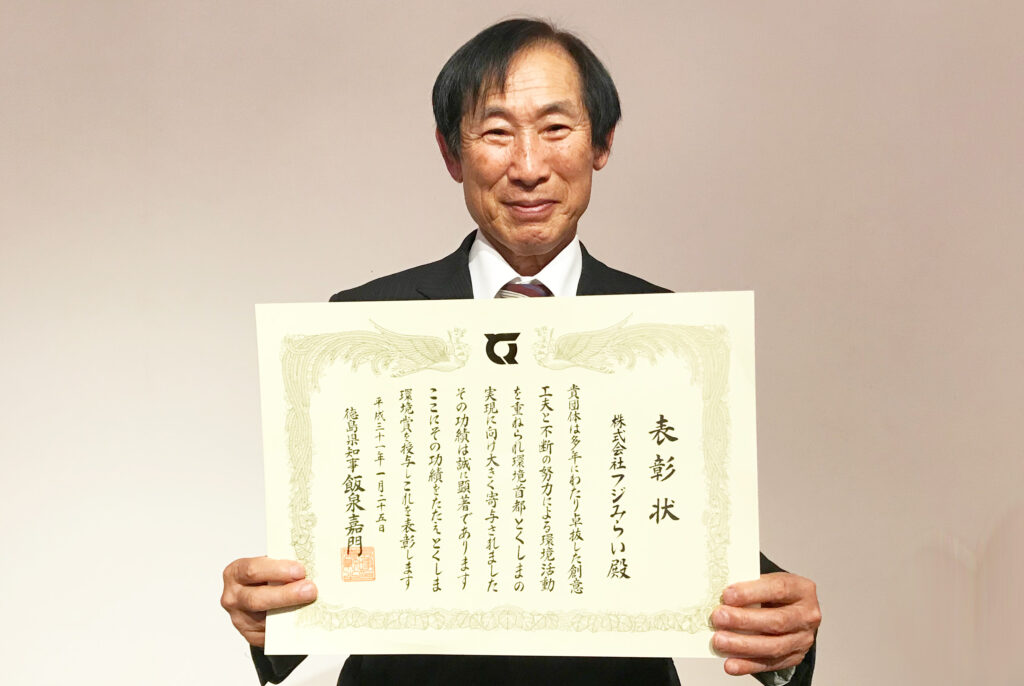 表彰状
株式会社フジみらい殿
貴団体は多年にわたり卓抜した創意
工夫と不断の努力による環境活動
を重ねられ環境首都とくしまの
実現に向け大きく寄与されました
その功績は誠に顕著であります
ここにその功績をたたえとくしま
環境賞を授与しこれを表彰します
平成三十一年一月二十五日
徳島県知事 飯泉嘉門